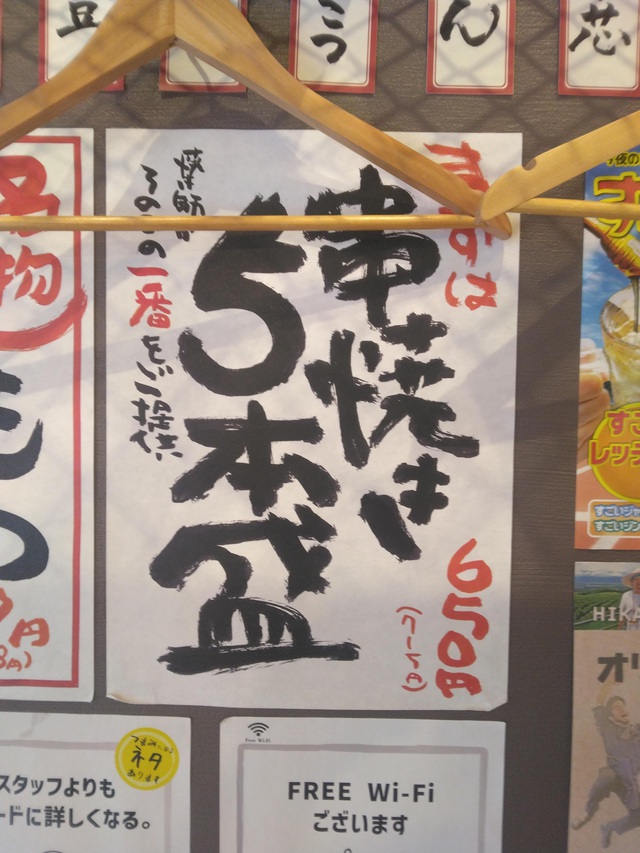 豆
こつ
ん
芯
まずは
串焼き
5本盛
650円
(715円)
薬師が
その日の一番をご提供
名
物
円
FREE Wi-Fi
ございます
スタッフよりも
ードに詳しくなる。
ネタ
あります
すご
レッ
すごいジ
すごいジン
HIKA
オリ